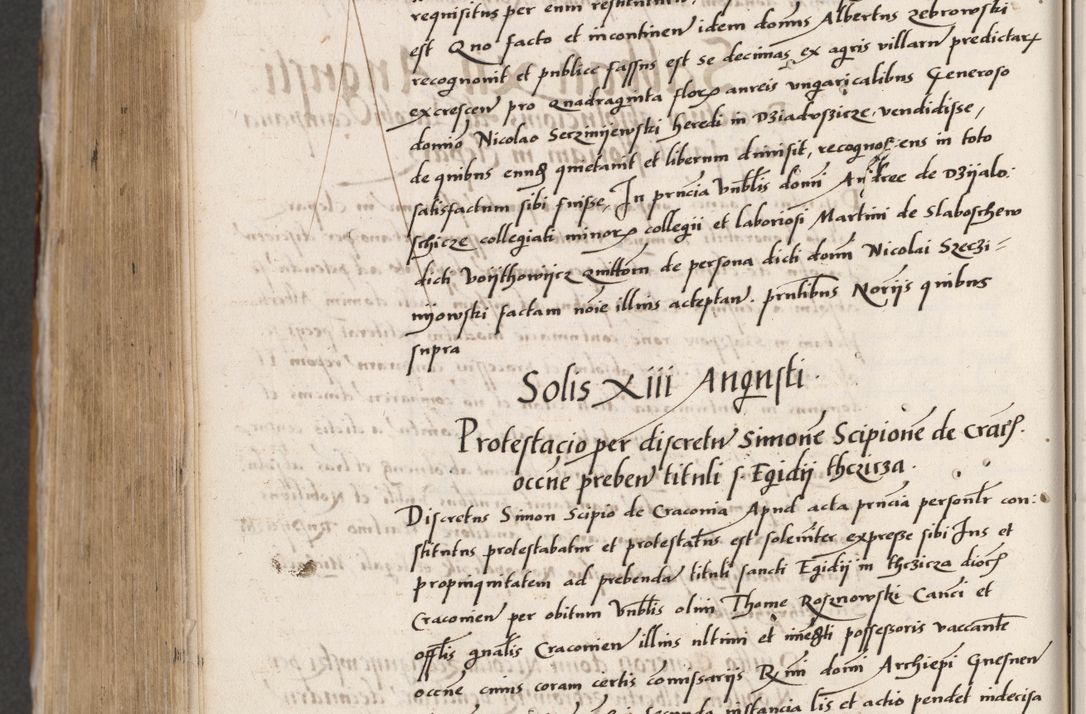 requisitus per eum
est Quo facto et incontinen idem domns Albertus Zebrowski
recognovit et publice fassus est se decimas ex agris villarū predictarꝝ
excrescen pro Quadraginta florꝫ aureis ungaricalibus Generoso
domīo Nicolao Seczmijewski heredi in Dziadoszicze vendidisse,
de quibus eundꝫ quietavit et liberum dimisit, recognoscens in toto
satisfactum sibi fuisse, In pn̄cia Vn̄blis domi Andree de Dzijalo:
schicze collegiati minorꝫ collegii et laboriosi Martini de Slaboschew
dicti Voijthowijcz Quittom de persona dicti domi Nicolai Szeczi=
mijowski factam noīe illius acceptan. pn̄tibus Norijs quibus
supra
Solis Xiii Augusti.
Protestacio per discretū Simonē Scipionē de Crac̄.
occn̄e preben tituli s. Egidij thczicza.
Discretus Simon Scipio de Craconia Apud acta pn̄cia personlr con:
stitutus protestabatur et protestatus est solemter expresse sibi Ius et
propinquitatem ad prebendā tituli sancti Egidij in thczicza dioc̄
Cracovien per obitum Vn̄blis olim Thome Rosznowski Canci et
offlis gnalis Cracovien illius ultimi et possessoris vaccantē
occn̄e cuius coram certis comissarijs R̄mi domi Archiepi Gnesnen
secunda instancia lis et actio pendet indecisa